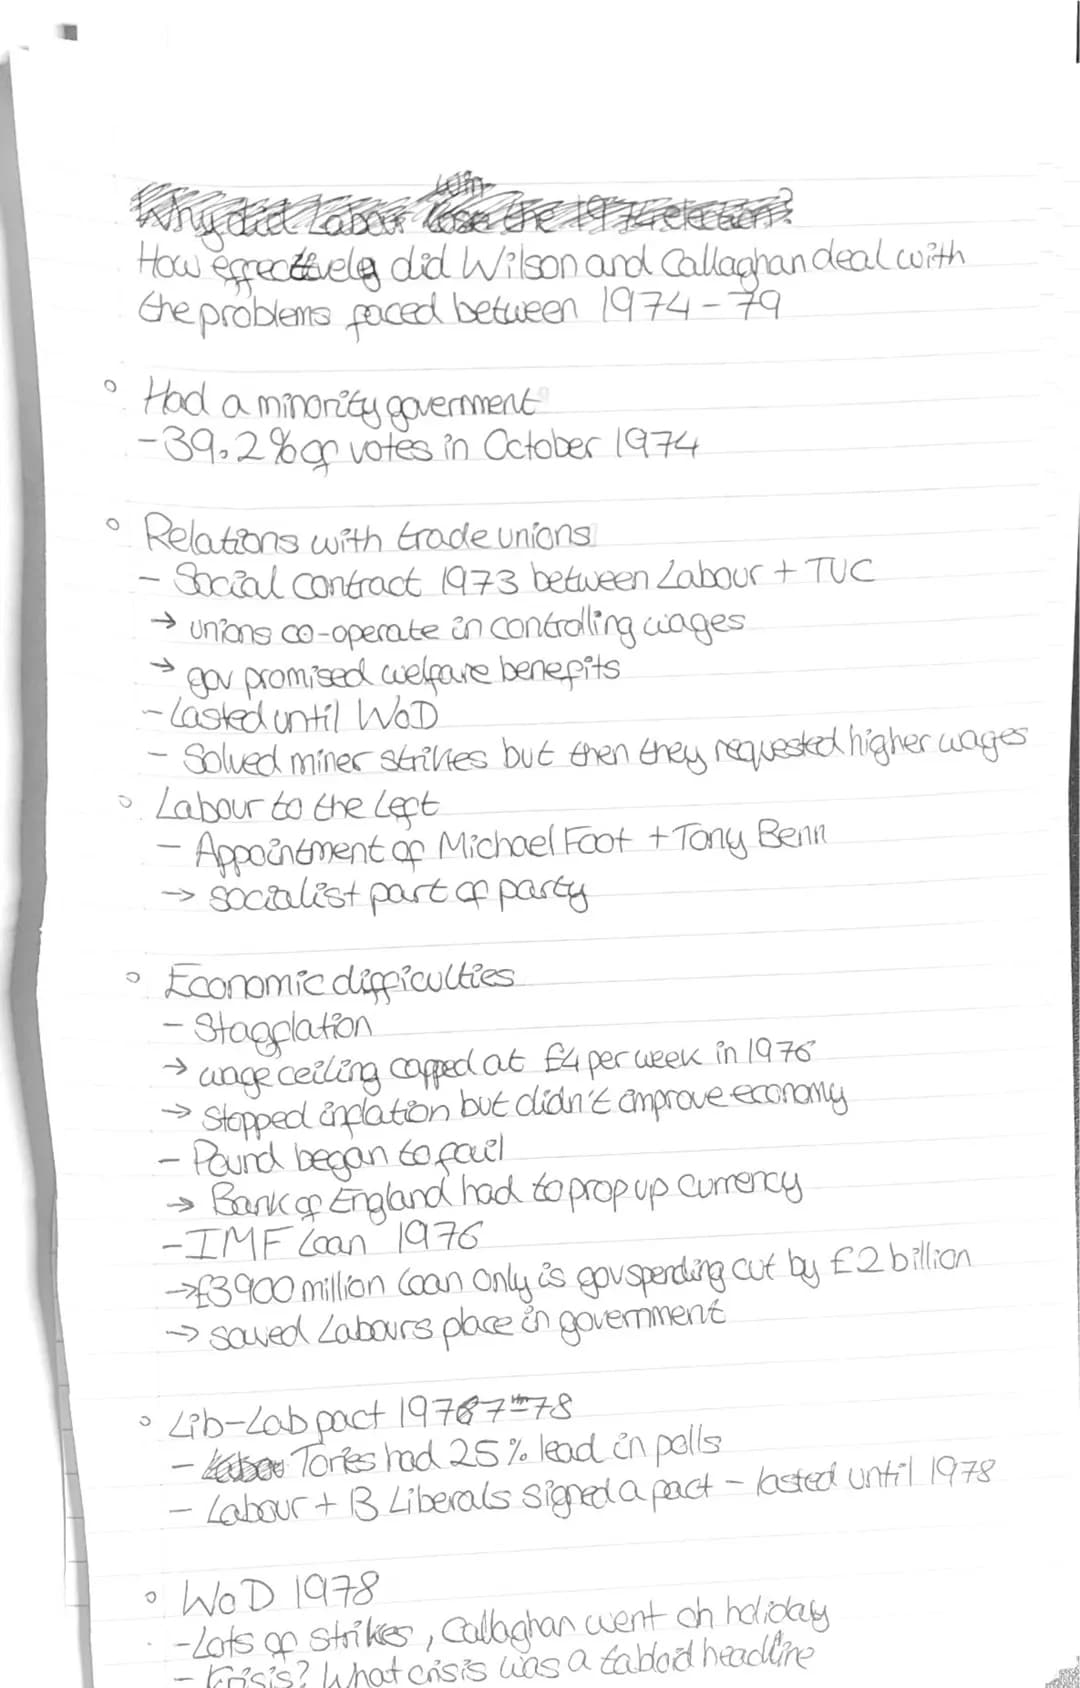 Why did Labour lose the 1974 election?
win
How effectively did Wilson and Callaghan deal with
the problems faced between 1974-79
◦ Had a minority government
-39.2% of votes in October 1974
◦ Relations with trade unions
- Social contract 1973 between Labour + TUC
→ unions co-operate in controlling wages
→ gov promised welfare benefits
- Lasted until WoD
- Solved miner strikes but then they requested higher wages
◦ Labour to the left
- Appointment of Michael Foot + Tony Benn
→ socialist part of party
◦ Economic difficulties
- Stagflation
→ wage ceiling capped at £4 per week in 1976
→ stopped inflation but didn't improve economy
- Pound began to fail
→ Bank of England had to prop up currency
- IMF Loan 1976
→ £3900 million loan only is gov spending cut by £2 billion
→ saved Labours place in government
◦ Lib-Lab pact 1977-78
- Tories had 25% lead in polls
- Labour + 13 Liberals signed a pact - lasted until 1978
◦ WoD 1978
- Lots of strikes, Callaghan went on holiday
- Crisis? What crisis was a tabloid headline